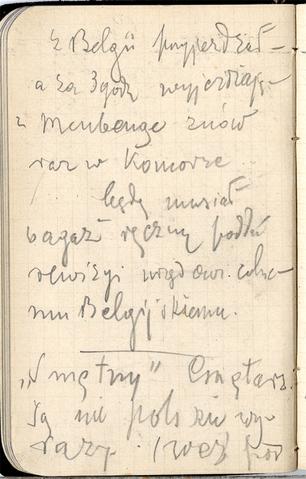 z Belgii przyjerdział –
a za 3 godz wyjerdiają
z Meubeuge znów
raz w Komorze
będę musiał
bagaż ręczny poddać
rewizyi urzędow. celne-
mu Belgijskiemu.
„Smętny” Cmętarz.
są nie polskie wy-
razy.